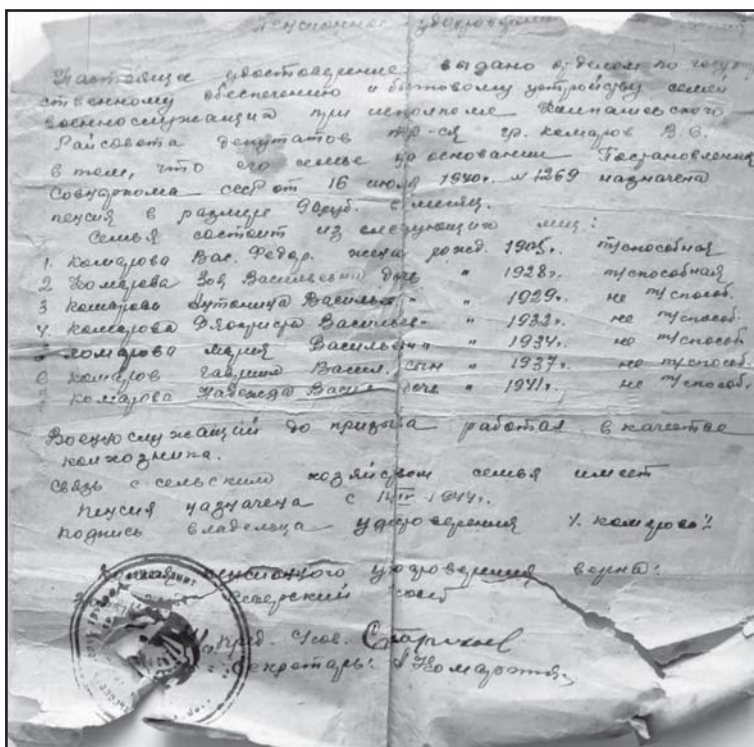 Пенсионное удостоверение
Настоящее удостоверение выдано отделом по госуд
ственному обеспечению и бытовому устройству семей
военнослужащих при исполкоме
Райсовета депутатов тр-ся гр. Комаров В.С.
в том, что его семье на основании Постановления
Совнаркома СССР от 16 июля 1940г. № 1269 назначена
пенсия в размере 90 руб. в месяц.
Семья состоит из следующих лиц:
1. Комарова Вас. Федор. жена рожд. 1905г. т/способная
2 Комарова Зоя Васильевна дочь " 1928г. т/способная
3 Комарова Антонина Васильев " " 1929г. не т/способ.
4. Комарова Васильев " " 1932г. не т/способ.
5 Комарова Мария Васильевн " " 1934г. не т/способ.
6 Комаров Гавриил Васил. сын " 1937г. не т/способ.
7 Комарова Надежда Васил дочь " 1941г. не т/способ.
Военнослужащий до призыва работал в качестве
колхозника.
Связь с сельским хозяйством семья имеет
Пенсия назначена с 14 IV 1944г.
Подпись владельца удостоверения /. Комарова /.
Копия пенсионного удостоверения верна:
Пред. с/сов.
Секретарь: